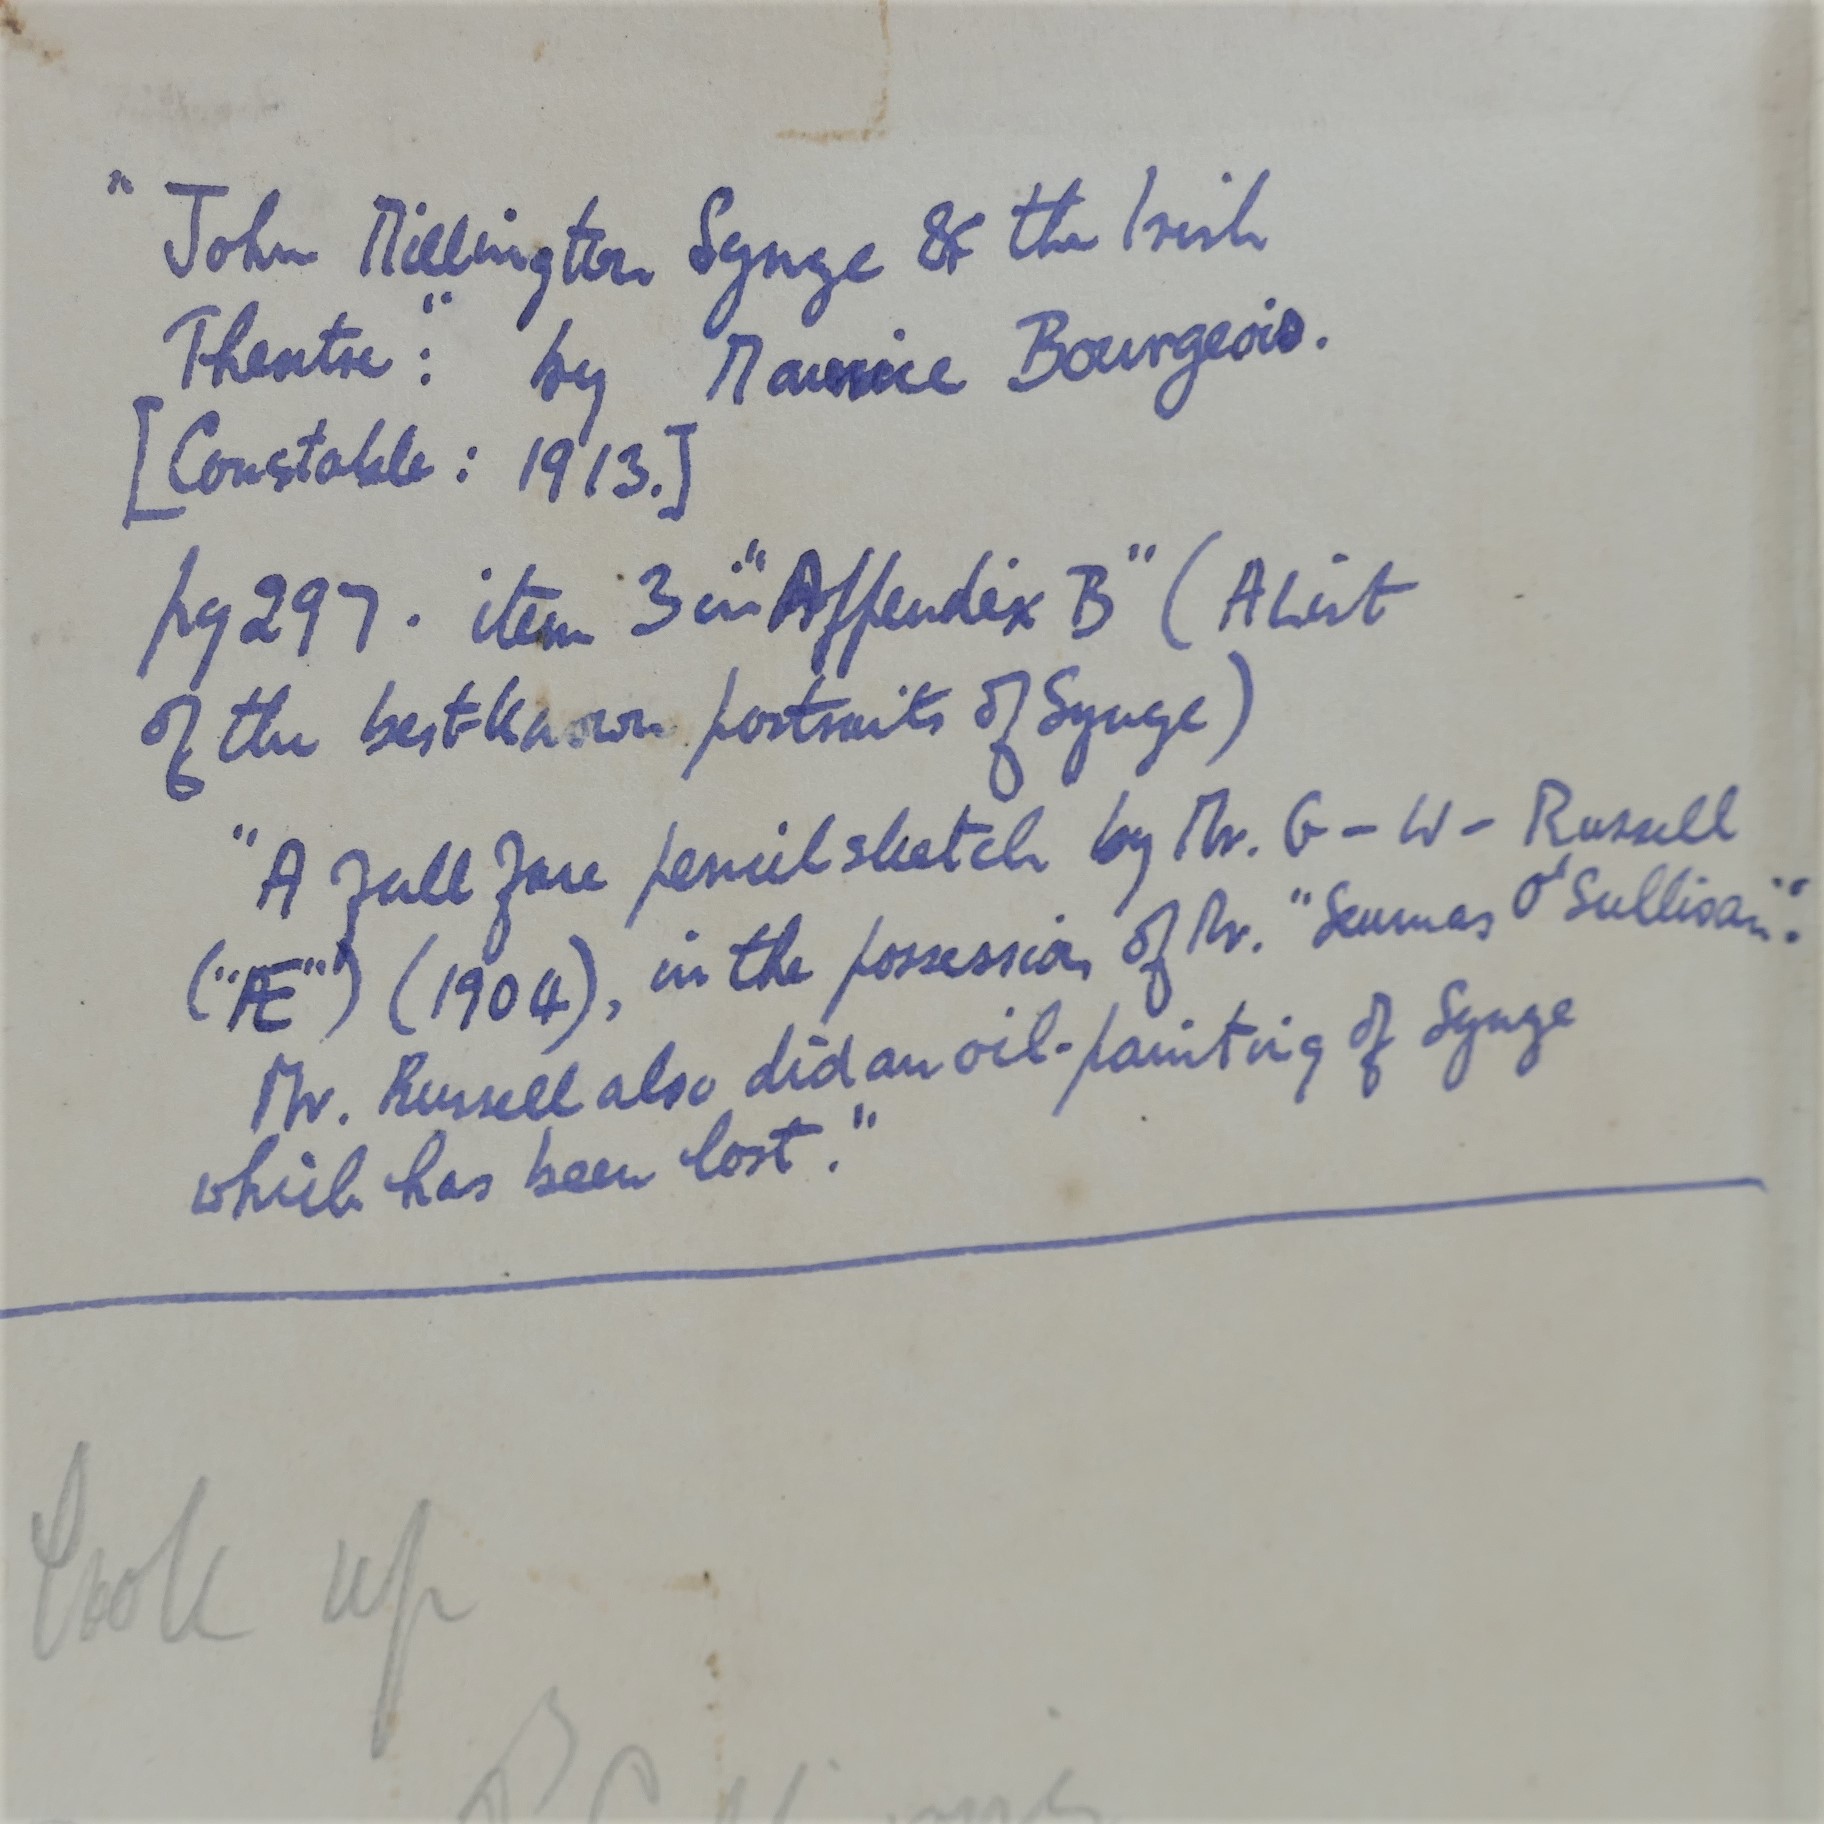 "John Millington Synge & the Irish
Theatre:" by Maurice Bourgeois.
[Constable: 1913.]
pg 297. item 3 in "Appendix B" (A List
of the best-known portraits of Synge)
"A full face pencil sketch by Mr. G-W-Russell
("Æ") (1904), in the possession of Mr. "Seumas O'Sullivan".
Mr. Russell also did an oil-painting of Synge
which has been lost."
Look up